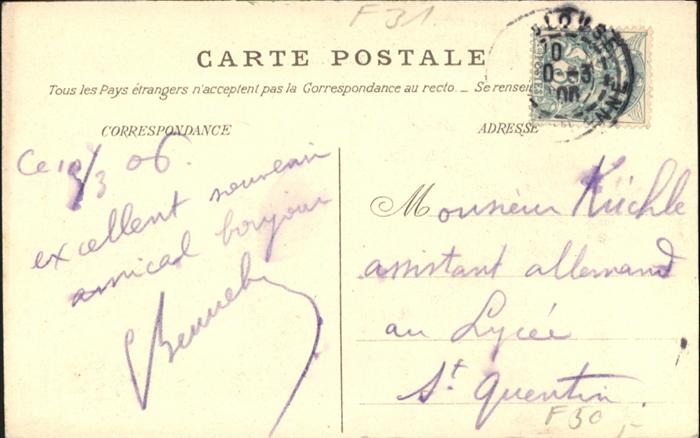 F31.
CARTE POSTALE
Tous les Pays étrangers n'acceptent pas la Correspondance au recto._ Se rensei
CORRESPONDANCE
ADRESSE
Ce 10/3 06.
excellent souvenir
amical bonjour
Monsieur Küchle
assistant allemand
au Lycée
St Quentin
F30